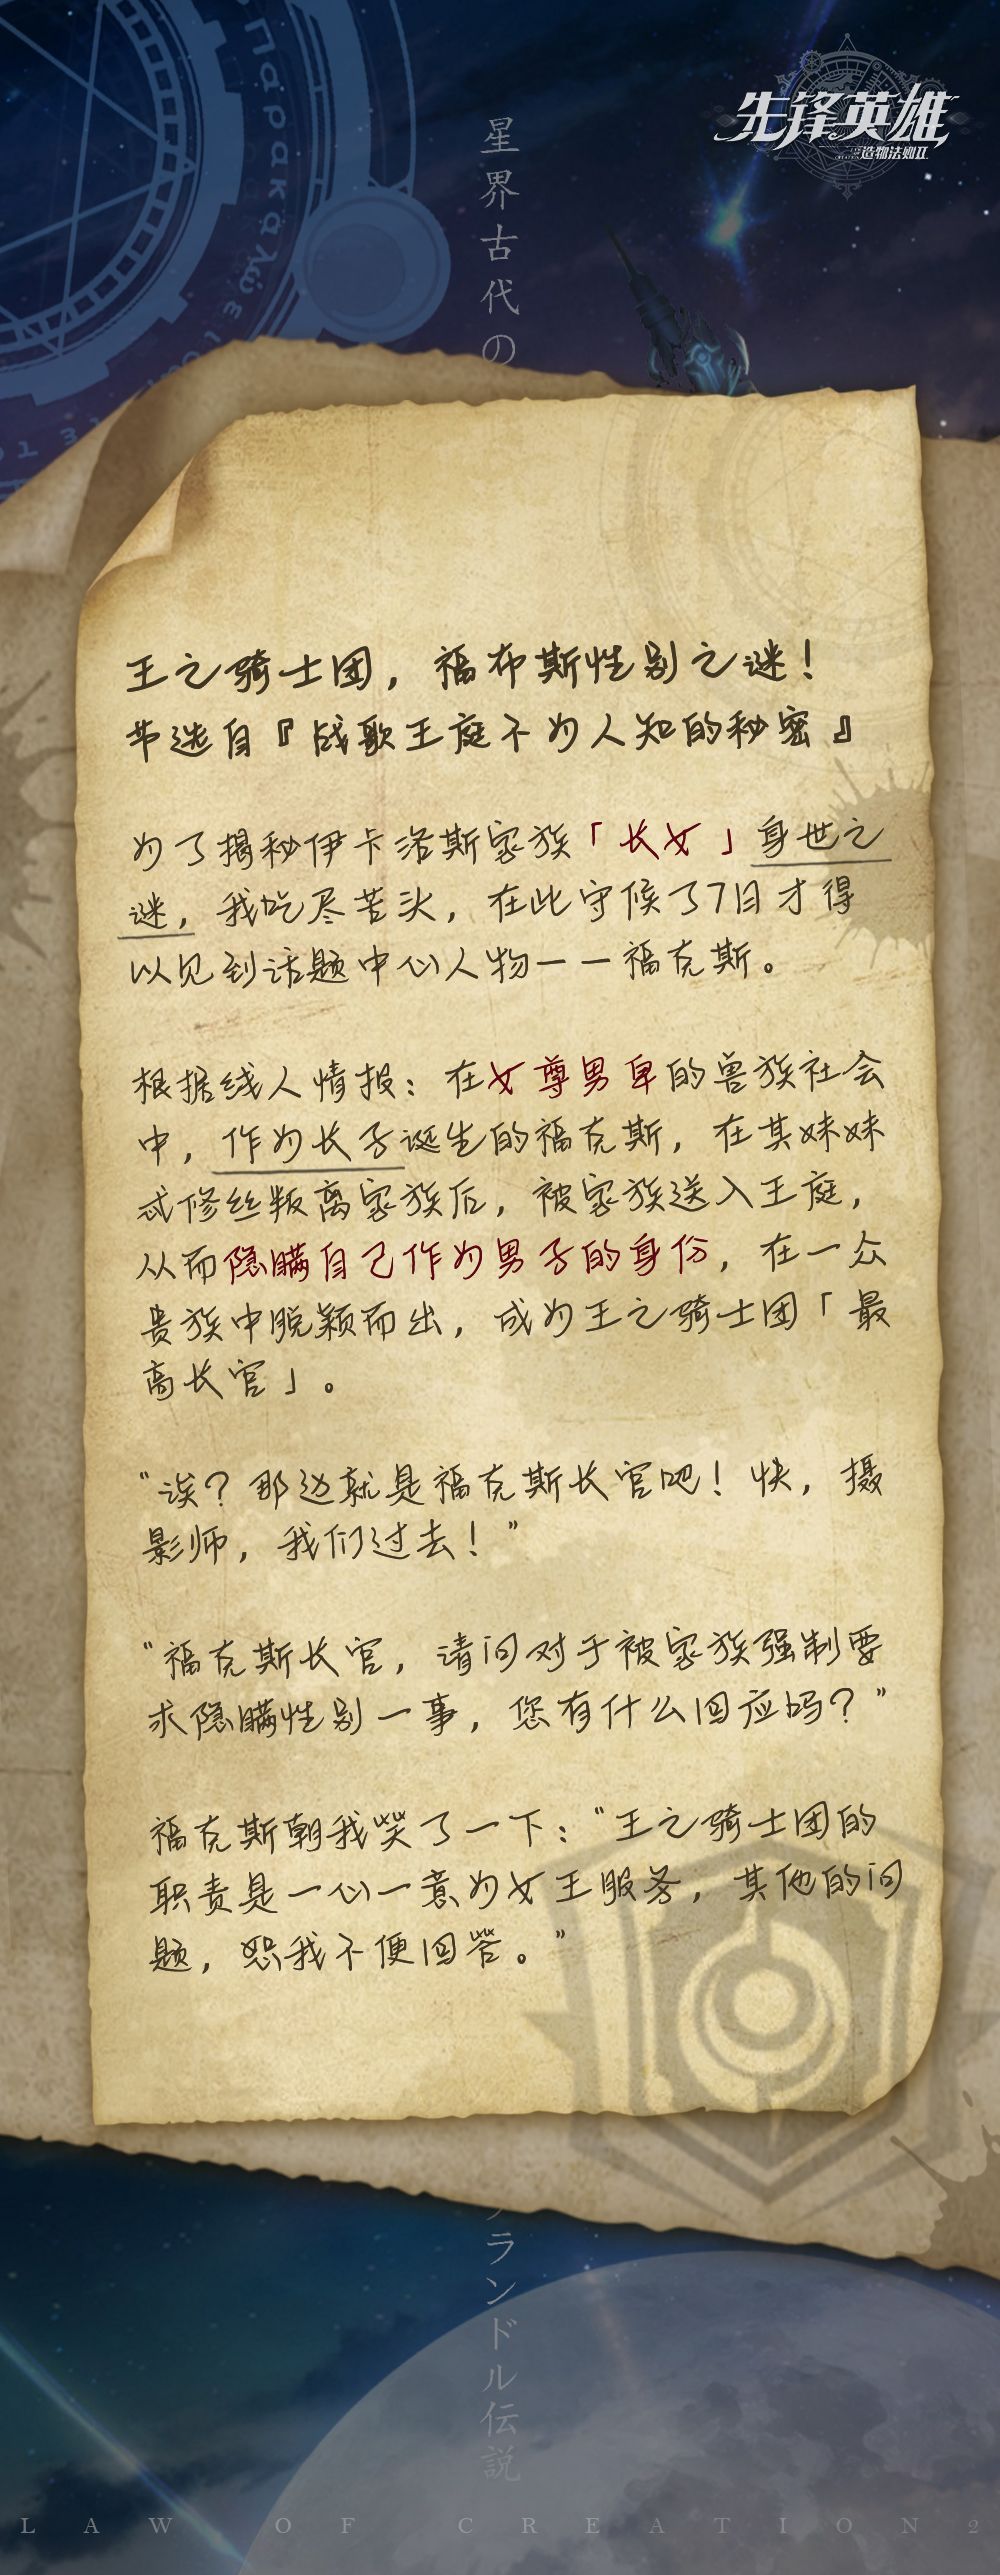 先锋英雄
造物法则II
παρακαλώ
星界古代の
王之骑士团，福布斯性别之谜！
节选自『战歌王庭不为人知的秘密』
为了揭秘伊卡洛斯家族「长女」身世之
谜，我吃尽苦头，在此守候了7日才得
以见到话题中心人物——福克斯。
根据线人情报：在女尊男卑的兽族社会
中，作为长子诞生的福克斯，在其妹妹
忒修丝叛离家族后，被家族送入王庭，
从而隐瞒自己作为男子的身份，在一众
贵族中脱颖而出，成为王之骑士团「最
高长官」。
“诶？那边就是福克斯长官吧！快，摄
影师，我们过去！”
“福克斯长官，请问对于被家族强制要
求隐瞒性别一事，您有什么回应吗？”
福克斯朝我笑了一下：“王之骑士团的
职责是一心一意为女王服务，其他的问
题，恕我不便回答。”
ランドル伝説
LAW OF CREATION2